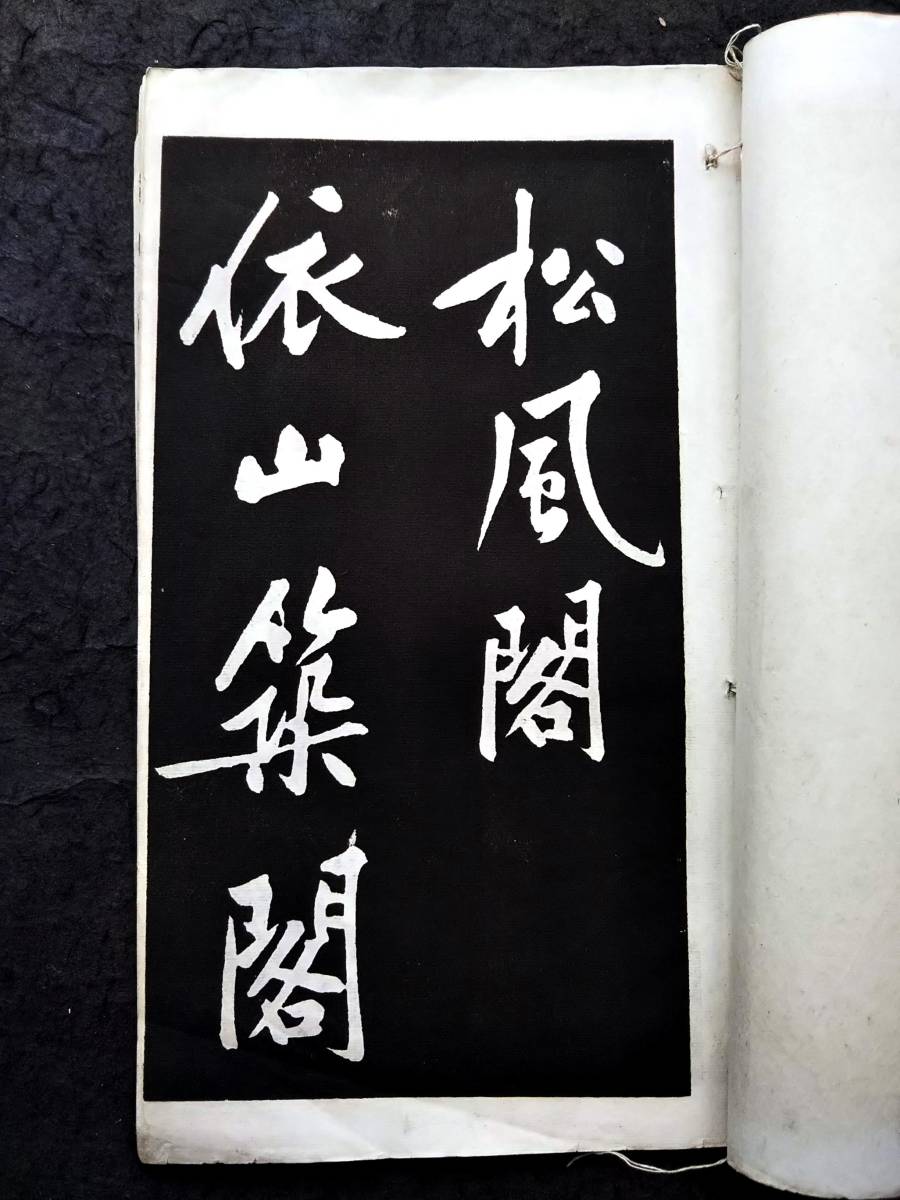 松風閣
依山築閣